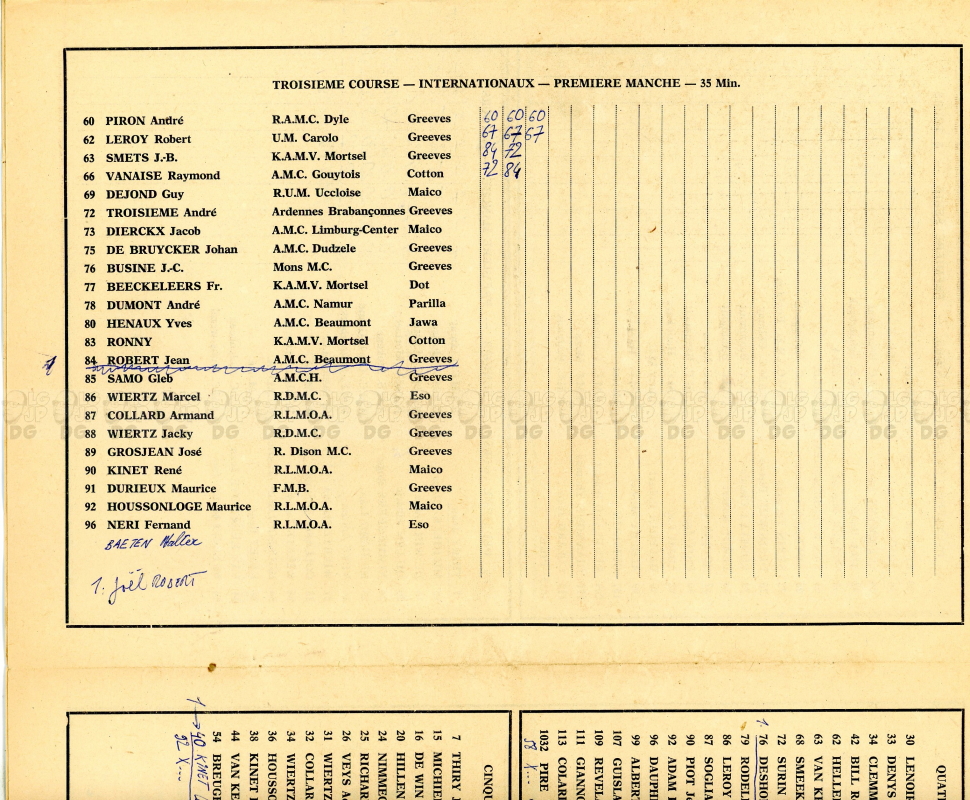 TROISIEME COURSE — INTERNATIONAUX — PREMIERE MANCHE — 35 Min.
60 PIRON André R.A.M.C. Dyle Greeves 60 60 60
62 LEROY Robert U.M. Carolo Greeves 67 67 67
63 SMETS J.-B. K.A.M.V. Mortsel Greeves 84 72
66 VANAISE Raymond A.M.C. Gouytois Cotton 72 84
69 DEJOND Guy R.U.M. Uccloise Maico
72 TROISIEME André Ardennes Brabançonnes Greeves
73 DIERCKX Jacob A.M.C. Limburg-Center Maico
75 DE BRUYCKER Johan A.M.C. Dudzele Greeves
76 BUSINE J.-C. Mons M.C. Greeves
77 BEECKELEERS Fr. K.A.M.V. Mortsel Dot
78 DUMONT André A.M.C. Namur Parilla
80 HENAUX Yves A.M.C. Beaumont Jawa
83 RONNY K.A.M.V. Mortsel Cotton
84 ROBERT Jean A.M.C. Beaumont Greeves
85 SAMO Gleb A.M.C.H. Greeves
86 WIERTZ Marcel R.D.M.C. Eso
87 COLLARD Armand R.L.M.O.A. Greeves
88 WIERTZ Jacky R.D.M.C. Greeves
89 GROSJEAN José R. Dison M.C. Greeves
90 KINET René R.L.M.O.A. Maico
91 DURIEUX Maurice F.M.B. Greeves
92 HOUSSONLOGE Maurice R.L.M.O.A. Maico
96 NERI Fernand R.L.M.O.A. Eso
BAETEN Walter
1. Joël ROBERT
CINQU
7 THIRY J
15 MICHIE
16 DE WIN
20 HILLEN
24 NIMMEG
25 RICHAR
26 VEYS A
31 WIERTZ
32 COLLAR
34 WIERTZ
36 HOUSSO
38 KINET
44 VAN KE
54 BREUGE
1 → 40 KINET
92 X...
QUAT
30 LENOIR
33 DENYS
34 CLEMM
42 BILL R
62 HELLE
63 VAN K
68 SMEEK
72 SURIN
1. 76 DESHO
79 RODEL
86 LEROY
87 SOGLIA
90 PIOT J
92 ADAM
96 DAUPH
99 ALBERT
107 GUISLA
109 REVEL
111 GIANNO
113 COLAR
1032 PIRE
58 X...